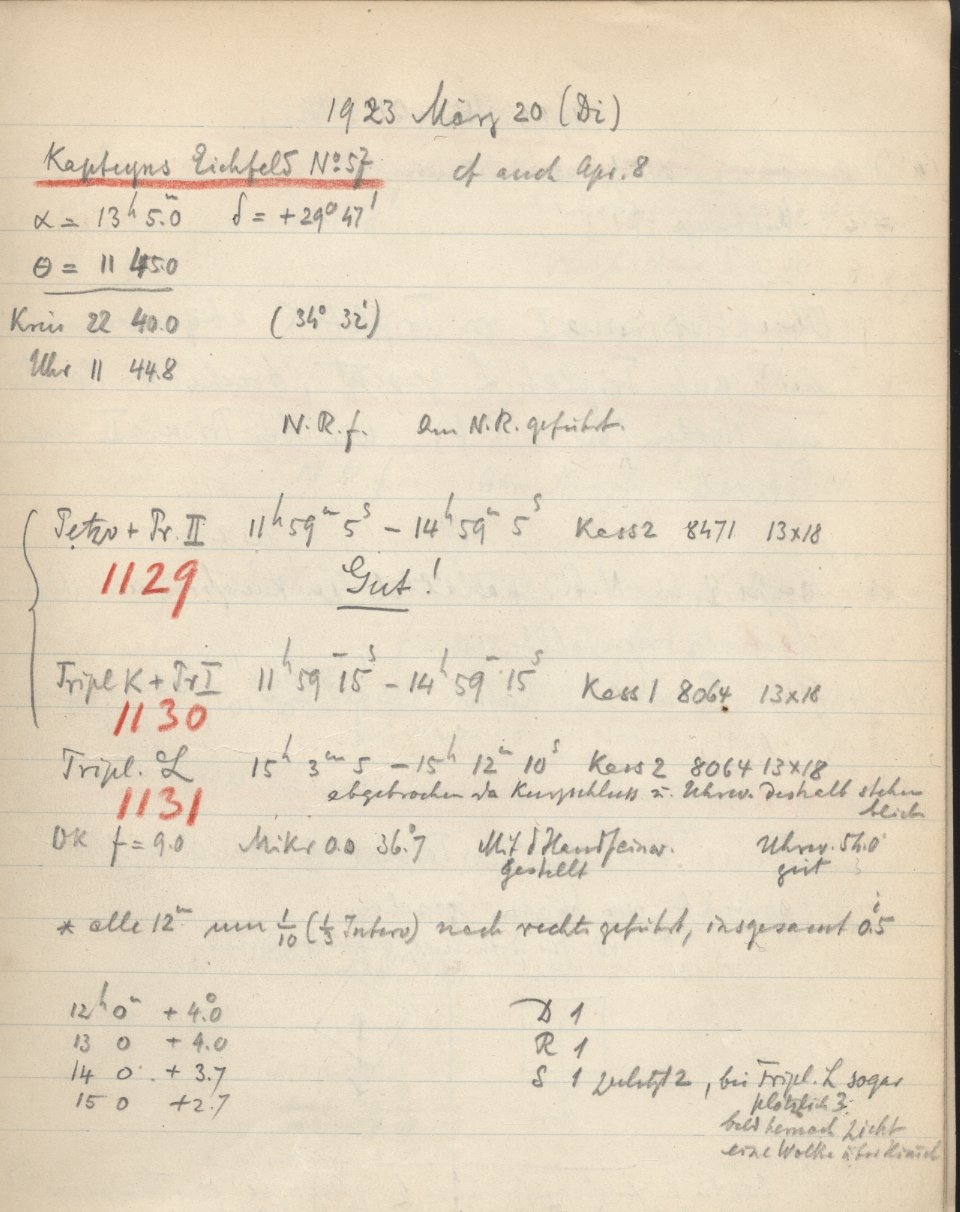 1923 März 20 (Di)
Kapteyns Eichfeld No 57 cf auch Apr. 8
α = 13h 5.m0 δ = +29° 47'
θ = 11 45.0
Kreis 22 40.0 (34° 32')
Uhr 11 44.8
N.R.f. Am N.R. geführt.
Petzv + Pr. II 11h 59m 5s – 14h 59m 5s Kass 2 8471 13x18
1129 Gut!
Tripl K + Pr I 11h 59m 15s – 14h 59m 15s Kass 1 8064 13x18
1130
Tripl. L 15h 3m 5 – 15h 12m 10s Kass 2 8064 13x18
1131 abgebrochen da Kurzschluss u. Uhrw. deshalb stehen
blieb
OK f = 9.0 Mikr 0.0 36.°7 Mit d Handfeinw. Uhrw. 54.0
gestellt gut
* alle 12m um 1/10 (1/3 Interv) nach rechts geführt, insgesamt 0.i5
12h 0m + 4.°0 D 1
13 0 + 4.0 R 1
14 0 + 3.7 S 1 zuletzt 2, bei Tripl. L sogar
15 0 + 2.7 plötzlich 3.
bald hernach zieht
eine Wolke